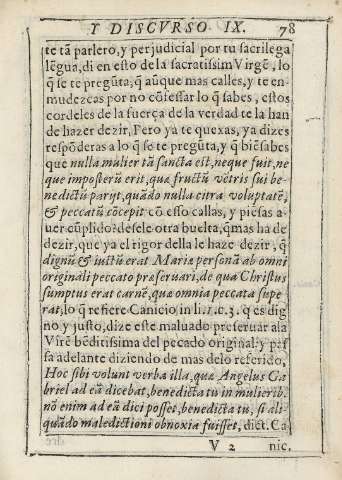 Y DISCVRSO IX. 78
te tã parlero, y perjudicial por tu sacrilega
lẽgua, di en esto de la sacratissim Virgẽ, lo
q̃ se te pregũta, q̃ aũque mas calles, y te en-
mudezcas por no cõfessar lo q̃ sabes, estos
cordeles de la fuerça de la verdad te la han
de hazer dezir, Pero ya te quexas, ya dizes
respõderas a lo q̃ se te pregũta, y q̃ biẽ sabes
que nulla mulier tã sancta est, neque fuit, ne
que imposterũ erit, quæ fructũ vẽtris sui be-
nedictũ parijt, quãdo nulla citra voluptatẽ,
& peccatũ cõcepit cõ esso callas, y piẽsas a-
uer cũplido? desele otra buelta, q̃ mas ha de
dezir, que ya el rigor della le haze dezir, q̃
dignũ & iuctũ erat Mariæ personã ab omni
originali peccato præseruari, de qua Christus
sumptus erat carnẽ, qua omnia peccata supe
rat, lo q̃ refiere Canicio in li. 1. c. 3. q̃ es dig
no y justo, dize este maluado preseruar a la
Virẽ bẽditissima del pecado original: y pas
sa adelante diziendo de mas delo referido,
Hoc sibi volunt verba illa, quæ Angelus Ga
briel ad eã dicebat, benedicta tu in mulierib.
nõ enim ad eã dici posset, benedicta tu, si ali-
quãdo maledictioni obnoxia fuisset, dict. Ca
V 2 nic.